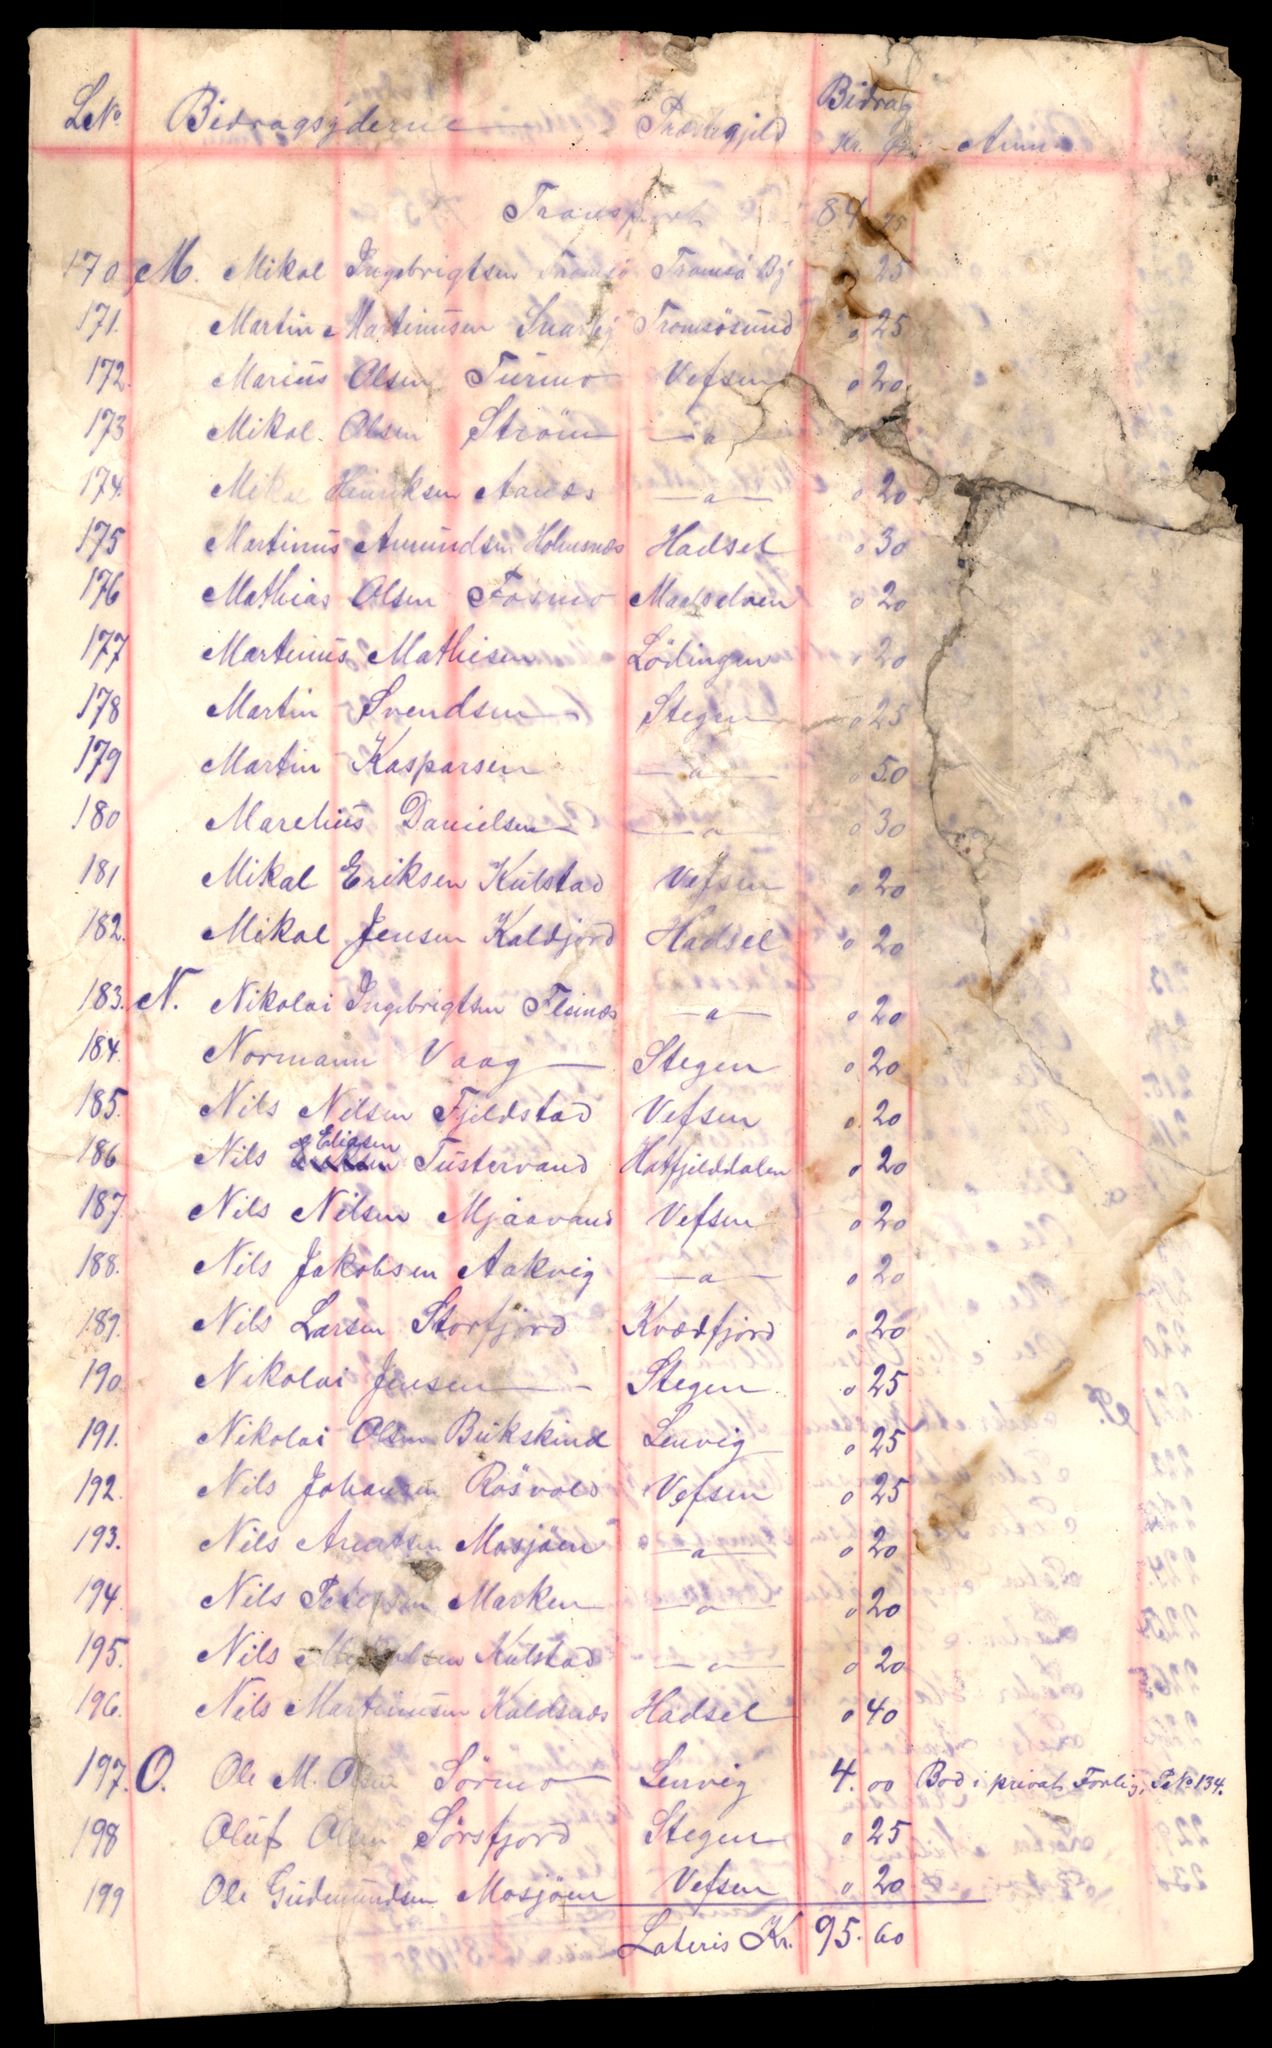 LNo. Bidragsyderne Præstegjeld Bidrag Kr. Øre Anm
Transport 84 25
170 M. Mikal Ingebrigtsen Tromsö Tromsö By 25
171. Martin Martinusen Snarby Tromsösund " 25
172. Marius Olsen Turmo Vefsen " 20
173 Mikal Olsen Ström — " —
174. Mikal Henriksen Aanes — " — " 20
175 Martinus Amundsen Holmsnes Hadsel " 30
176 Mathias Olsen Fosmo Maalselven " 20
177 Martinus Mathisen Lödingen " 20
178 Martin Svendsen Stegen " 25
179 Martin Kasparsen — " — " 50
180 Marelius Danielsen — " — " 30
181 Mikal Eriksen Kulstad Vefsen " 20
182. Mikal Jensen Kaldfjord Hadsel " 20
183. N. Nikolai Ingebrigtsen Flesnes — " — " 20
184. Normann Vaag Stegen " 20
185. Nils Nilsen Fjeldstad Vefsen " 20
186 Nils Eliasen Tustervand Hatfjelddalen " 20
187. Nils Nilsen Mjaavand Vefsen " 20
188. Nils Jakobsen Aakvig — " — " 20
189. Nils Larsen Storfjord Kvædfjord " 20
190 Nikolai Jensen Stegen " 25
191. Nikolai Olsen Bukskind Lenvig " 25
192. Nils Johansen Rösvold Vefsen " 25
193. Nils Arentsen Mosjöen — " — " 20
194. Nils Petersen Marken — " — " 20
195. Nils Kulstad — " — " 20
196. Nils Martinusen Kaldsnes Hadsel " 40
197. O. Ole M. Olsen Sörmo Lenvig 4. 00 Bod i privat Forlig,
198 Oluf Olsen Sörsfjord Stegen " 25
199 Ole Gudemundsen Mosjöen Vefsen " 20
Lateris Kr. 95. 60